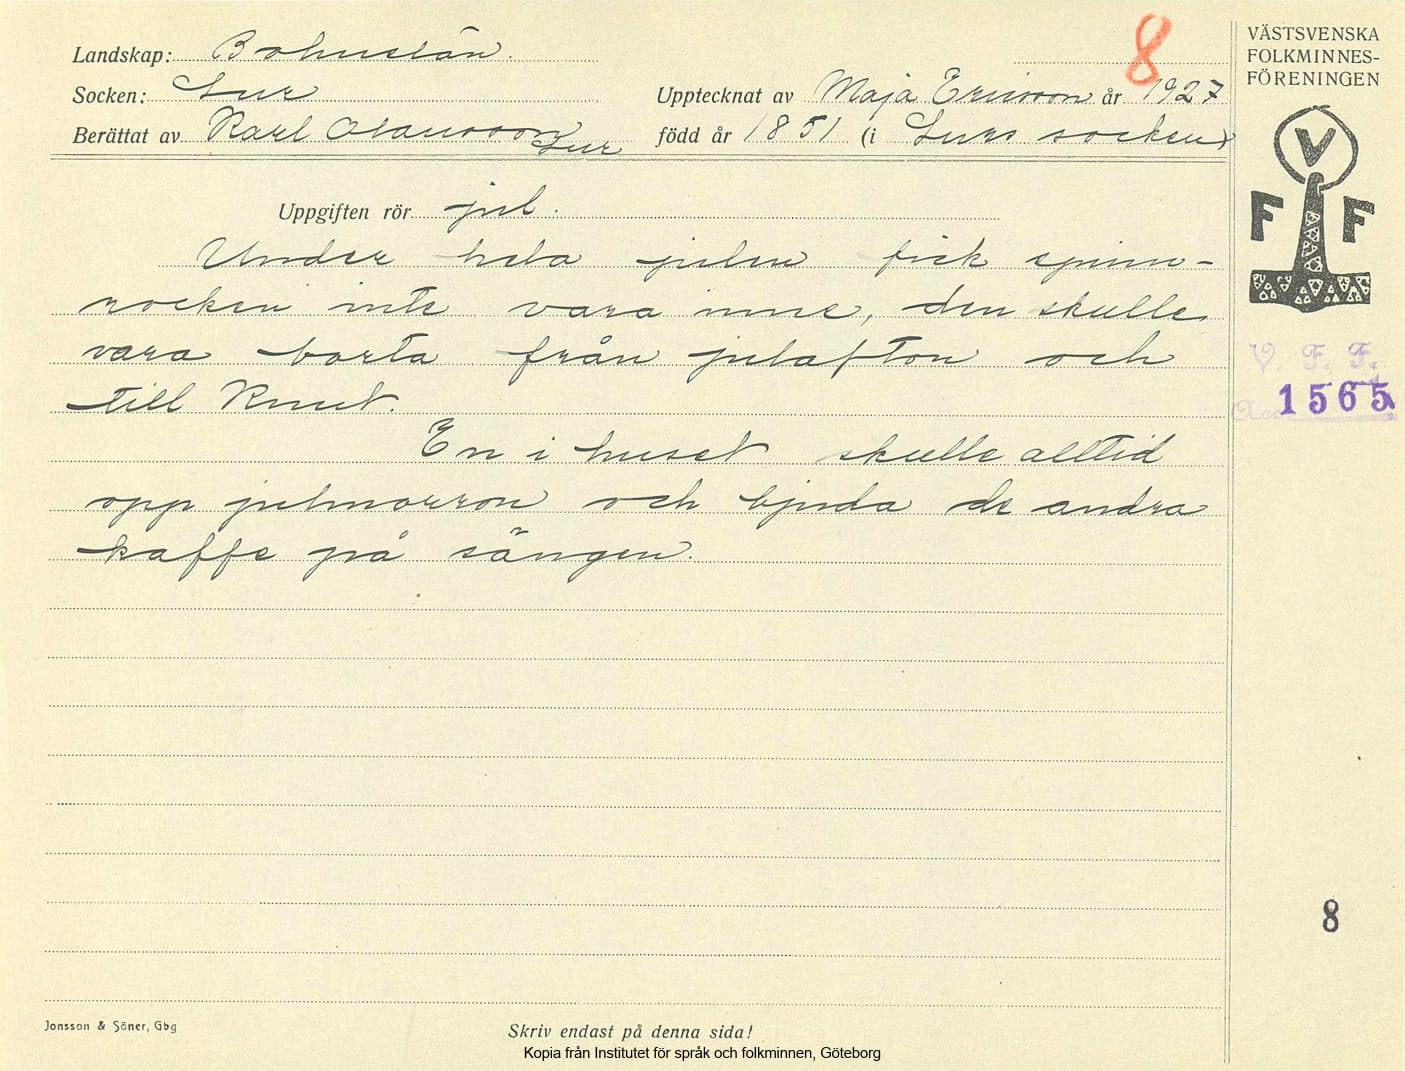 8
Landskap: Bohuslän.
Socken: Lur
Upptecknat av Maja Ericson år 1927
Berättat av Karl Olausson Lur
född år 1851 (i Lurs socken)
Uppgiften rör jul.
Under hela julen fick spinn-
rocken inte vara inne, den skulle
vara borta från julafton och
till Knut.
En i huset skulle alltid
opp julmorron och bjuda de andra
kaffe på sängen.
VÄSTSVENSKA
FOLKMINNES-
FÖRENINGEN
V
F F
V. F. F.
Acc. 1565
8
Jonsson & Söner, Gbg
Skriv endast på denna sida!
Kopia från Institutet för språk och folkminnen, Göteborg